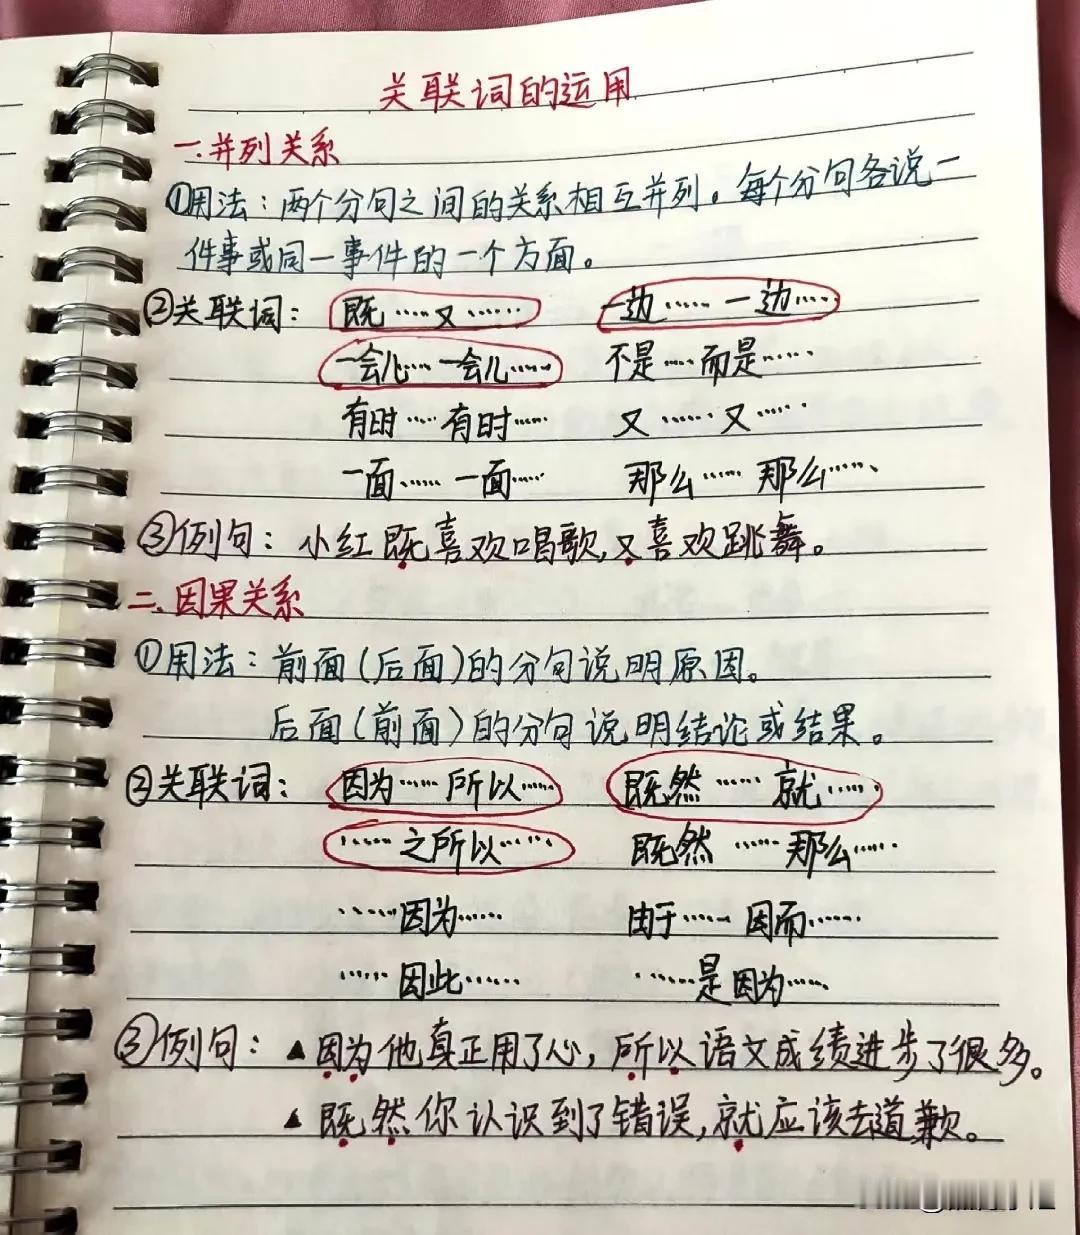 关联词的运用
一.并列关系
①用法：两个分句之间的关系相互并列。每个分句各说一
件事或同一事件的一个方面。
②关联词： 既……又…… 一边……一边……
一会儿……一会儿…… 不是……而是……
有时……有时…… 又……又……
一面……一面…… 那么……那么……
③例句：小红既喜欢唱歌，又喜欢跳舞。
二.因果关系
①用法：前面（后面）的分句说明原因。
后面（前面）的分句说明结论或结果。
②关联词： 因为……所以…… 既然……就……
……之所以…… 既然……那么……
……因为…… 由于……因而……
……因此…… ……是因为……
③例句：▲因为他真正用了心，所以语文成绩进步了很多。
▲既然你认识到了错误，就应该去道歉。